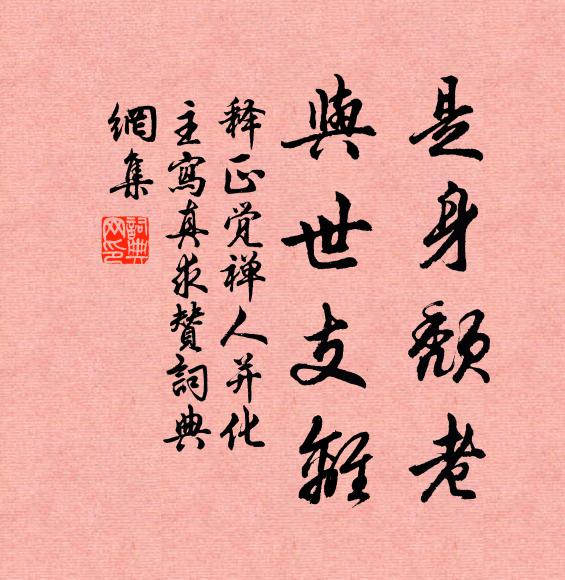 是身颓老
與世支離
释正觉禅人并化
主寫真求賛詞典
網集
詞典
网印